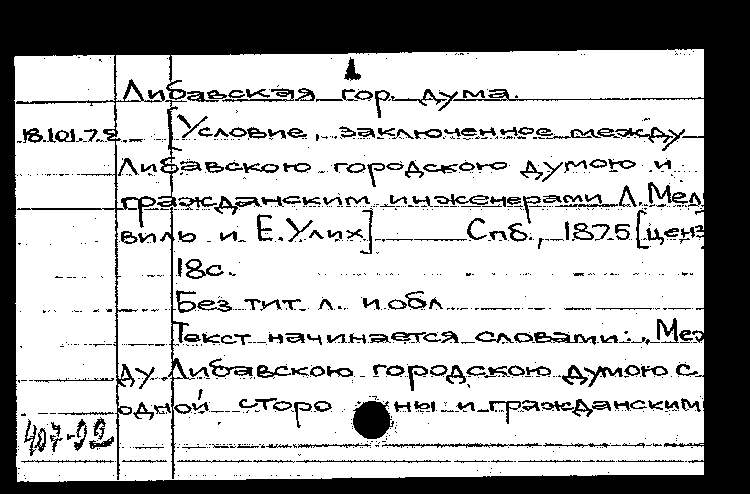 Либавская гор. дума.
18.101.7.2 [Условие, заключенное между
Либавскою городскою думою и
гражданскими инженерами Л. Мел
виль и Е. Улих] Спб., 1875 [ценз
18с.
Без тит. л. и обл
Текст начинается словами: „Меж
ду Либавскою городскою думою с
одной сторо ны и гражданским
407-92